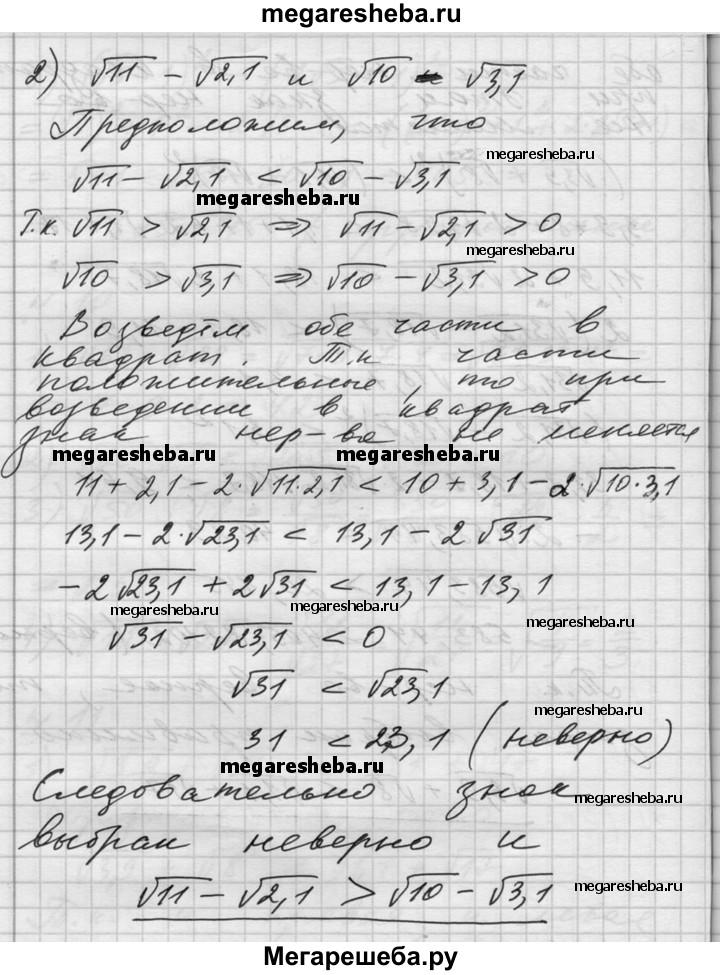 megaresheba.ru
2) √11 − √2,1 и √10 − √3,1
Предположим, что
megaresheba.ru
√11 − √2,1 < √10 − √3,1
megaresheba.ru
Т.к. √11 > √2,1 ⇒ √11 − √2,1 > 0
megaresheba.ru
√10 > √3,1 ⇒ √10 − √3,1 > 0
Возведём обе части в
квадрат. Т.к части
положительные, то при
возведении в квадрат
знак нер-ва не меняется
megaresheba.ru megaresheba.ru
11 + 2,1 − 2·√11·2,1 < 10 + 3,1 − 2·√10·3,1
13,1 − 2·√23,1 < 13,1 − 2√31
−2√23,1 + 2√31 < 13,1 − 13,1
megaresheba.ru megaresheba.ru
megaresheba.ru
√31 − √23,1 < 0
√31 < √23,1
megaresheba.ru
31 < 23,1 (неверно)
megaresheba.ru
Следовательно знак
megaresheba.ru
выбран неверно и
√11 − √2,1 > √10 − √3,1
megaresheba.ru
Мегарешеба.ру